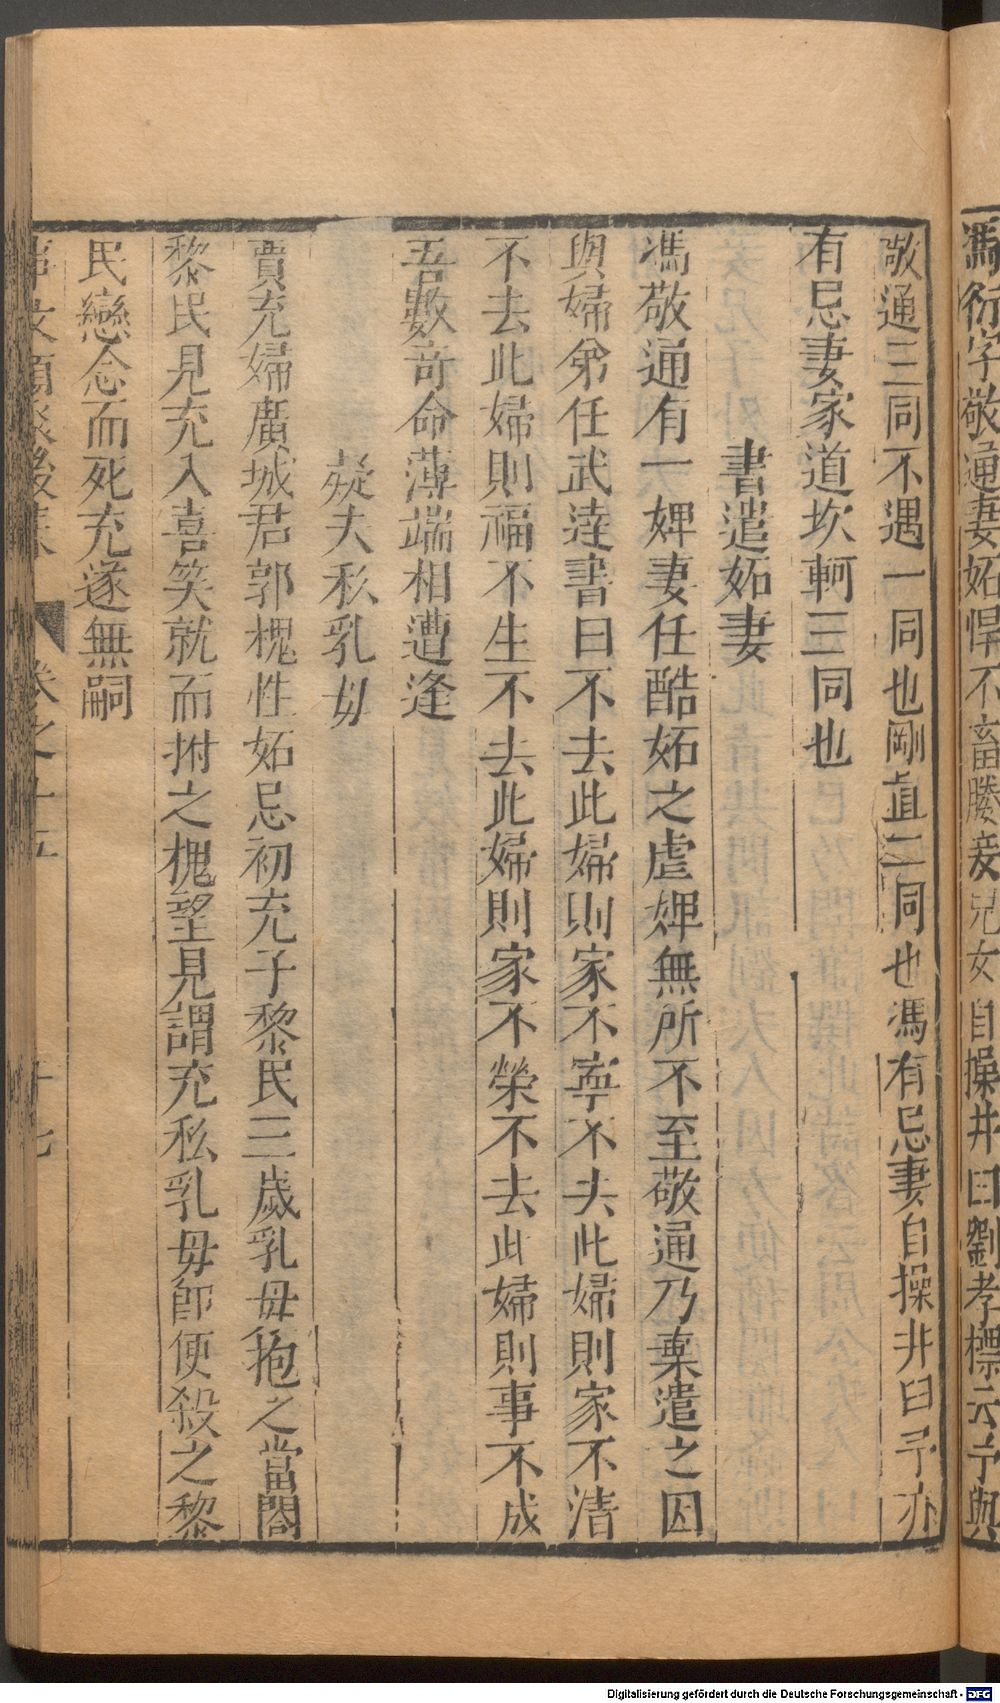 馮衍字敬通妻妬悍不畜媵妾兒女自操井臼劉孝標云予與
敬通三同不遇一同也剛直二同也馮有忌妻自操井臼予亦
有忌妻家道坎軻三同也
書遣妬妻
馮敬通有一婢妻任酷妬之虐婢無所不至敬通乃棄遣之因
與婦弟任武達書曰不去此婦則家不寧不去此婦則家不清
不去此婦則福不生不去此婦則家不榮不去此婦則事不成
吾數奇命薄端相遭逢
疑夫私乳母
賈充婦廣城君郭槐性妬忌初充子黎民三歲乳母抱之當閤
黎民見充入喜笑就而拊之槐望見謂充私乳母即便殺之黎
民戀念而死充遂無嗣
卷之十五
十七
Digitalisierung gefördert durch die Deutsche Forschungsgemeinschaft - DFG